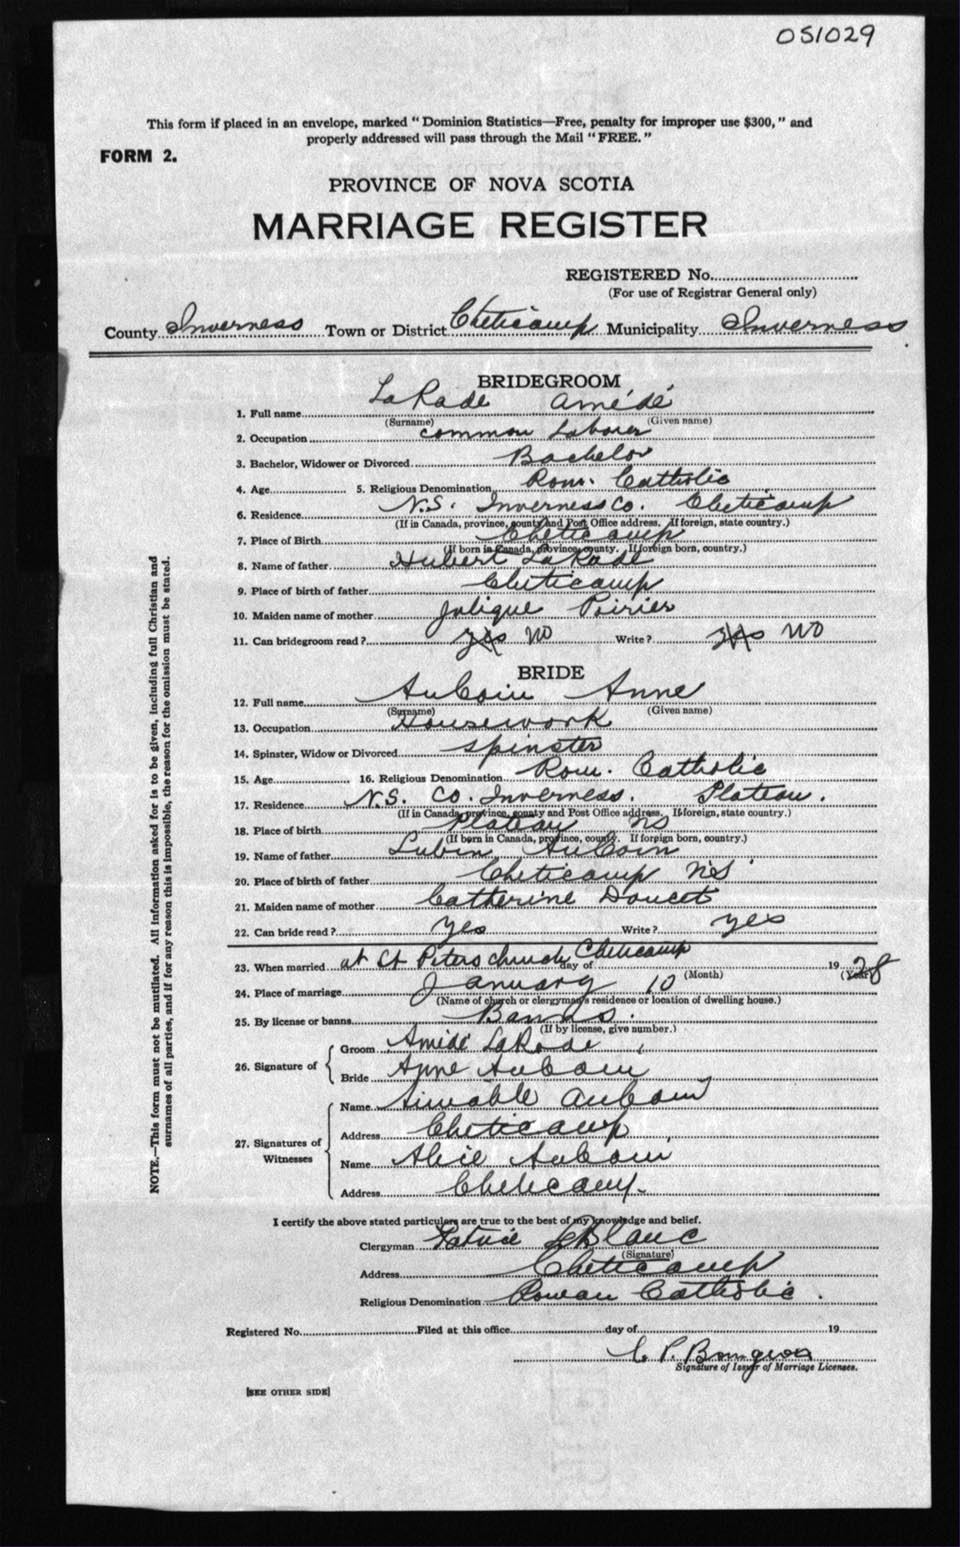 051029
This form if placed in an envelope, marked "Dominion Statistics—Free, penalty for improper use $300," and
properly addressed will pass through the Mail "FREE."
FORM 2.
PROVINCE OF NOVA SCOTIA
MARRIAGE REGISTER
REGISTERED No.
(For use of Registrar General only)
County Inverness Town or District Cheticamp Municipality Inverness
BRIDEGROOM
1. Full name LaRade Amédé
(Surname) (Given name)
2. Occupation common Laborer
3. Bachelor, Widower or Divorced Bachelor
4. Age 5. Religious Denomination Rom. Catholic
6. Residence N.S. Inverness Co. Cheticamp
(If in Canada, province, county and Post Office address. If foreign, state country.)
7. Place of Birth Cheticamp
(If born in Canada, province, county. If foreign born, country.)
8. Name of father Hubert LaRade
9. Place of birth of father Cheticamp
10. Maiden name of mother Julique Poirier
11. Can bridegroom read? yes NO Write? yes NO
BRIDE
12. Full name AuCoin Anne
(Surname) (Given name)
13. Occupation Housework
14. Spinster, Widow or Divorced spinster
15. Age 16. Religious Denomination Rom. Catholic
17. Residence N.S. Co. Inverness. Plateau.
(If in Canada, province, county and Post Office address. If foreign, state country.)
18. Place of birth Plateau NS
(If born in Canada, province, county. If foreign born, country.)
19. Name of father Lubin AuCoin
20. Place of birth of father Cheticamp NS
21. Maiden name of mother Catherine Doucet
22. Can bride read? yes Write? yes
23. When married at St Peters church Cheticamp day of 1928
(Month) (Year)
24. Place of marriage January 10
(Name of church or clergyman's residence or location of dwelling house.)
25. By license or banns Banns.
(If by license, give number.)
26. Signature of
Groom Amidé LaRade
Bride Anne Aucoin
27. Signatures of Witnesses
Name Simable Aucoin
Address Cheticamp
Name Alice Aucoin
Address Cheticamp.
I certify the above stated particulars are true to the best of my knowledge and belief.
Clergyman Patrice LeBlanc
(Signature)
Address Cheticamp
Religious Denomination Roman Catholic.
Registered No. Filed at this office day of 19
C P. Bourgeois
Signature of Issuer of Marriage Licenses.
[SEE OTHER SIDE]
NOTE.—This form must not be mutilated. All information asked for is to be given, including full Christian and
surnames of all parties, and if for any reason this is impossible, the reason for the omission must be stated.